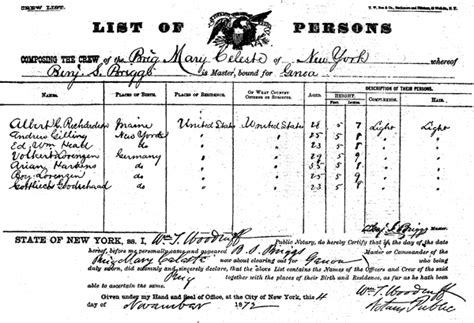 CREW LIST.
LIST OF PERSONS
COMPOSING THE CREW of the Brig Mary Celeste of New York whereof
Benj. S. Briggs is Master, bound for Genoa
DESCRIPTION OF THEIR PERSONS.
NAMES. PLACES OF BIRTH. PLACES OF RESIDENCE. OF WHAT COUNTRY CITIZENS OR SUBJECTS. AGED HEIGHT. COMPLEXION. HAIR.
Albert G. Richardson Maine United States United States 28 5 7 Light Light
Andrew Gilling New York 25 5 8
Ed. Wm Head do 23 5 8
Volkert Lorenzen Germany 29 5 9
Arian Martens do 35 5 8
Boy Lorenzen do 23 5 9
Gottlieb Goodschaad do 23 5
Benj. S. Briggs
STATE OF NEW YORK, ss. I, Wm T. Woodruff Public Notary, do hereby Certify that in the day of the date
hereof, before me personally came and appeared B. S. Briggs Master or Commander
of the Brig Mary Celeste on Genoa who being by me
duly sworn, did solemnly and sincerely declare, that the above List contains the Names of the Officers and Crew of the said
Brig together with the places of their Birth and Residence, as far as he hath been
able to ascertain the same.
Given under my Hand and Seal of Office, at the City of New York, this 4
day of November 1872
Wm T. Woodruff
Notary Public